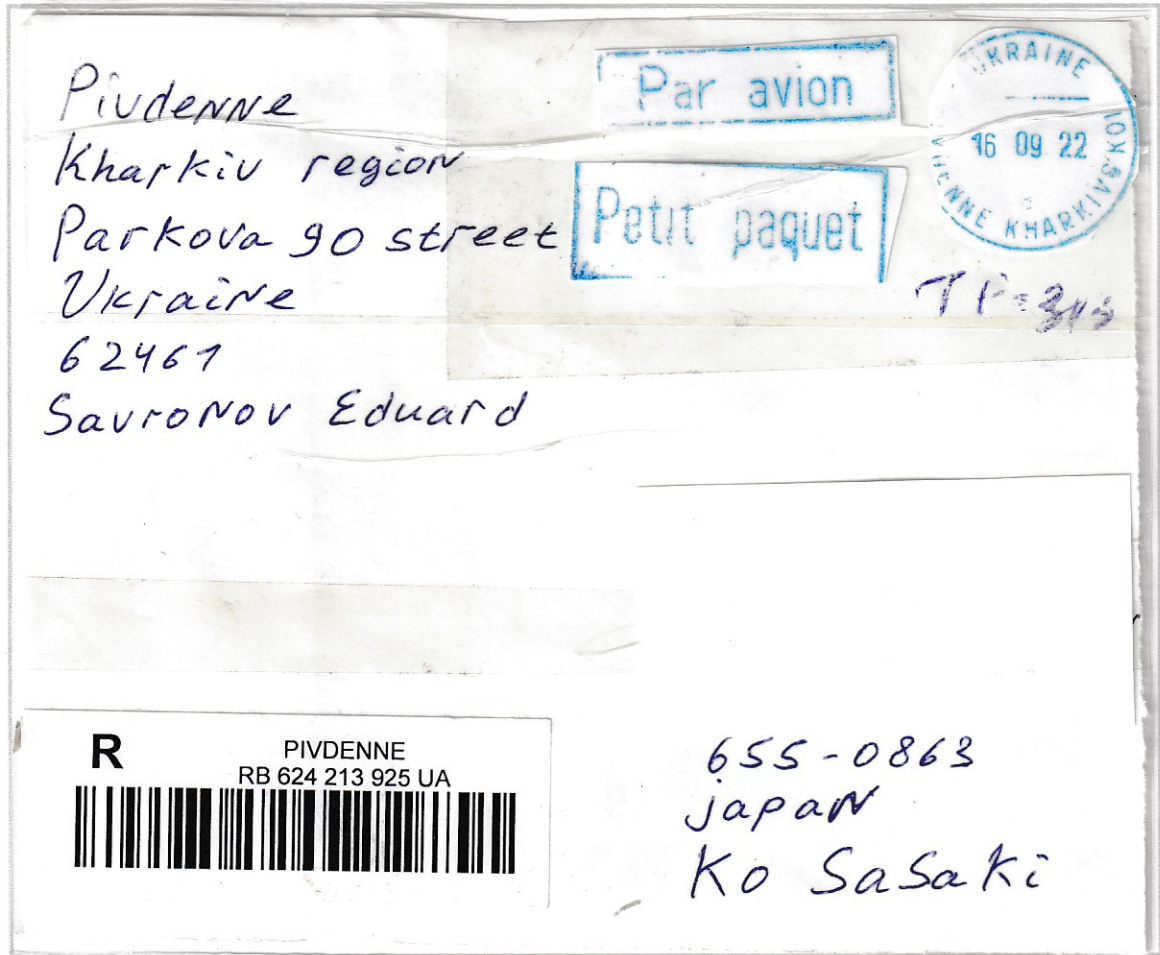 Pivdenne
Kharkiv region
Parkova 90 street
Ukraine
62461
Savronov Eduard
Par avion
Petit paquet
UKRAINE
16 09 22
KHARKIVS'KOI
R
PIVDENNE
RB 624 213 925 UA
655-0863
japan
Ko Sasaki